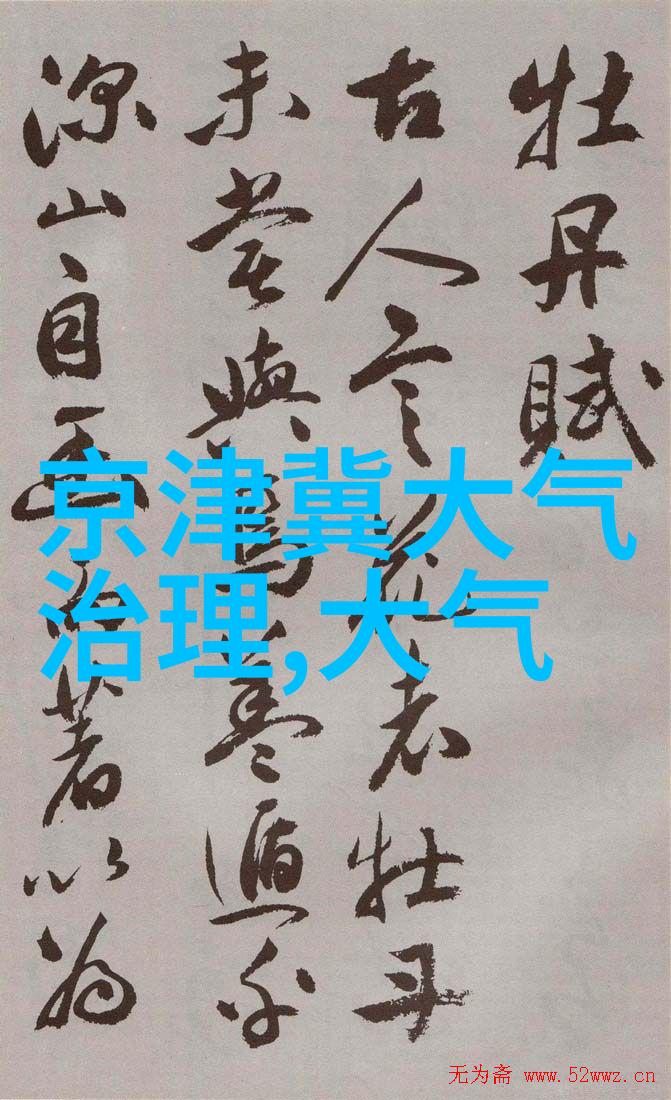 牡丹賦
古人言花者牡丹
未嘗與焉蓋遁乎
深山自幽而著以為
京津冀大气
治理,大气
无为斋 www.52wwz.cn